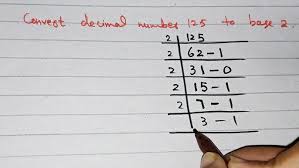 Convert decimal number 125 to base 2.
2 125
2 62-1
2 31-0
2 15-1
2 7-1
3-1